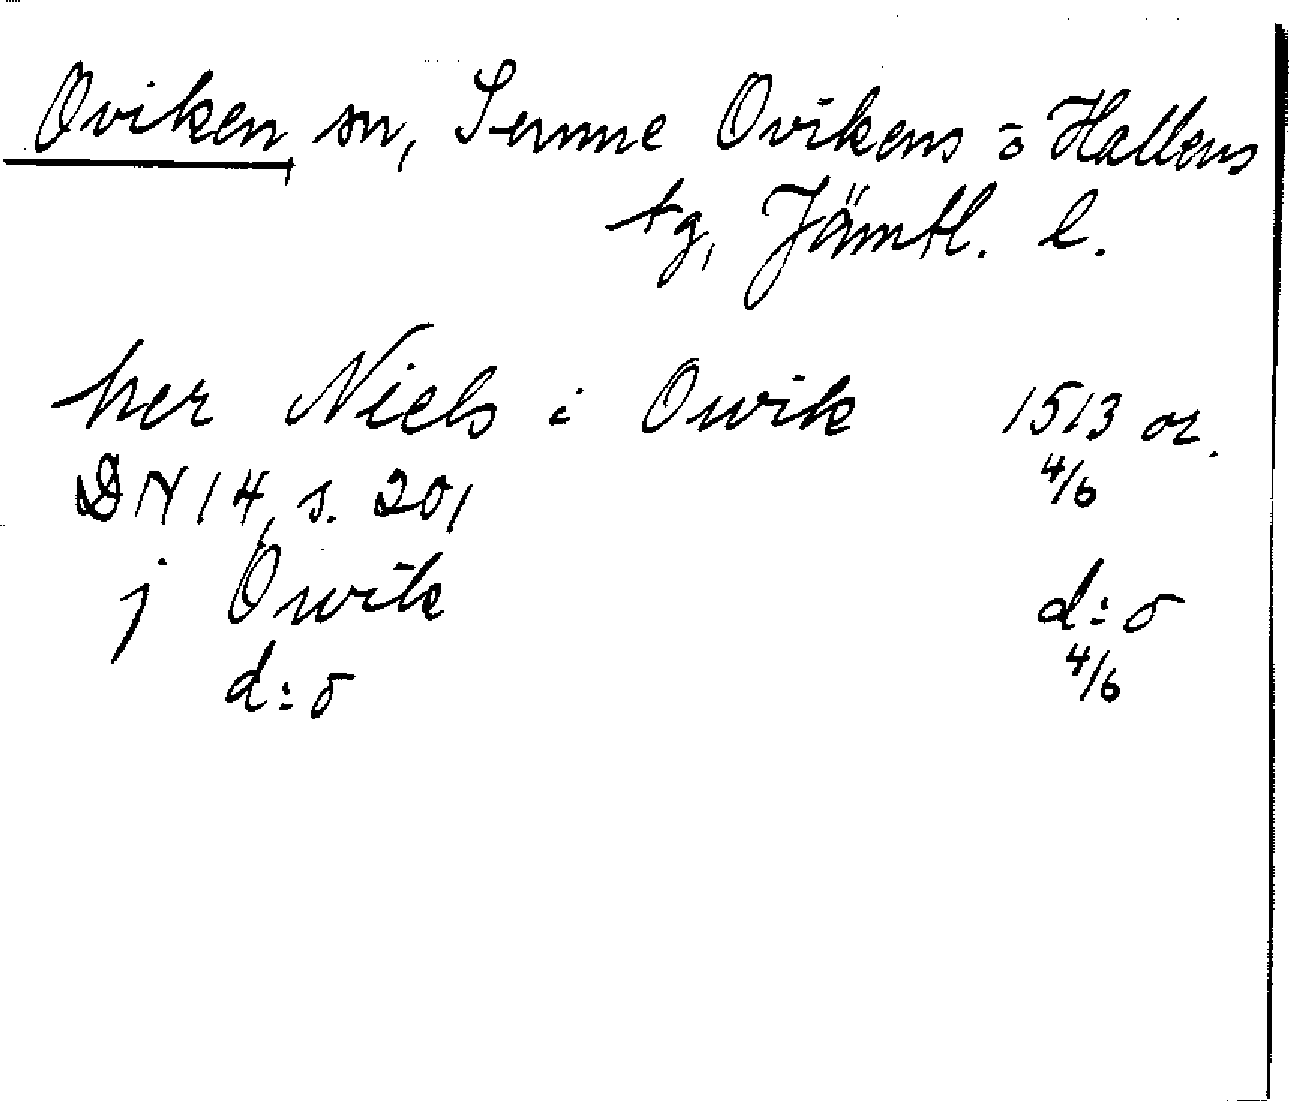 Oviken sn, Sunne Ovikens o Hallens
tg, Jämtl. l.
her Niels i Owik 1513 or.
DN 14, s. 201 4/6
j Owik d:o
d:o 4/6